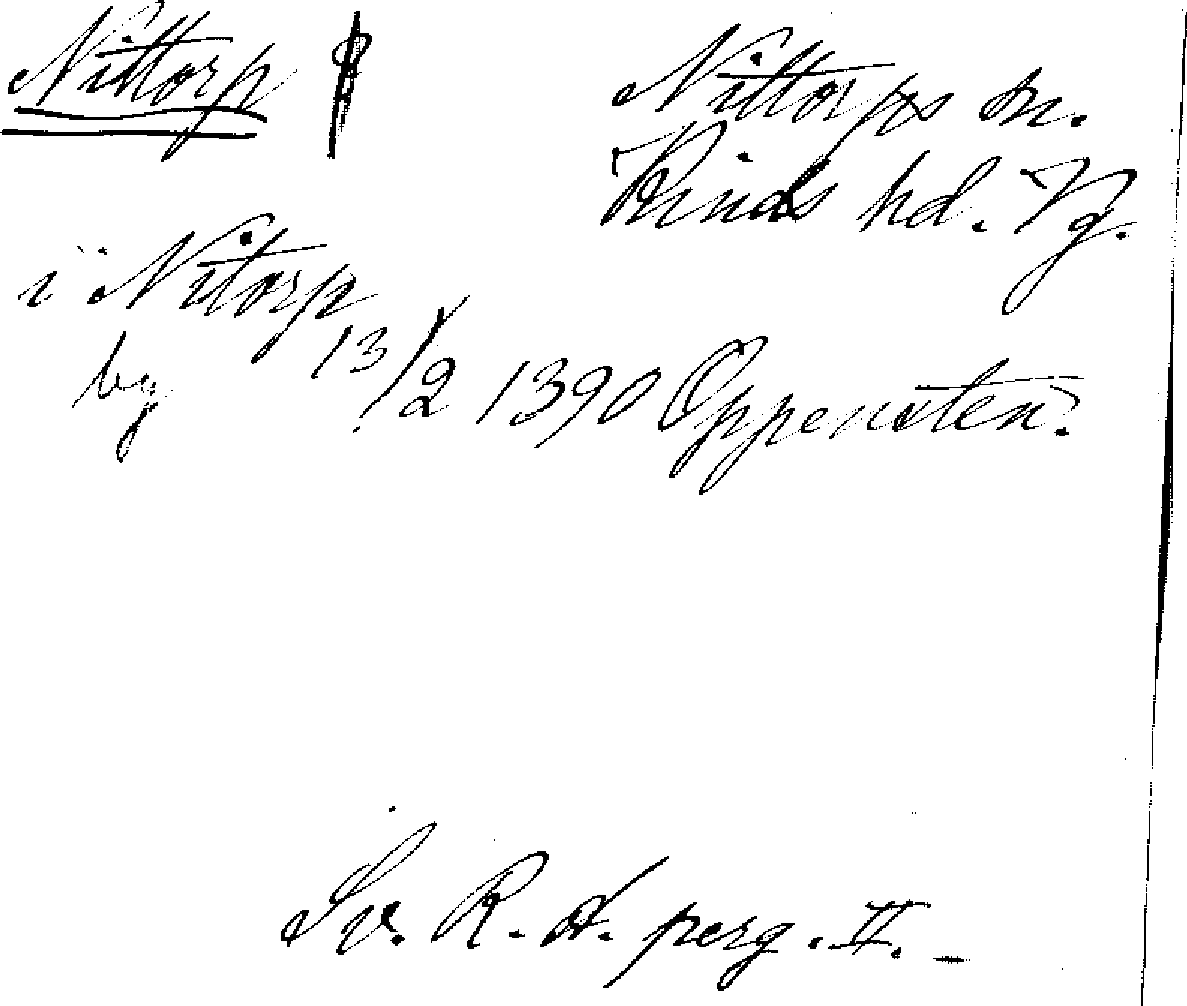 Nittorp
Nittorps sn.
Kinds hd. Vg.
i Nitorp
by 13/2 1390 Oppensten.
Sv. R. A. perg. II. -